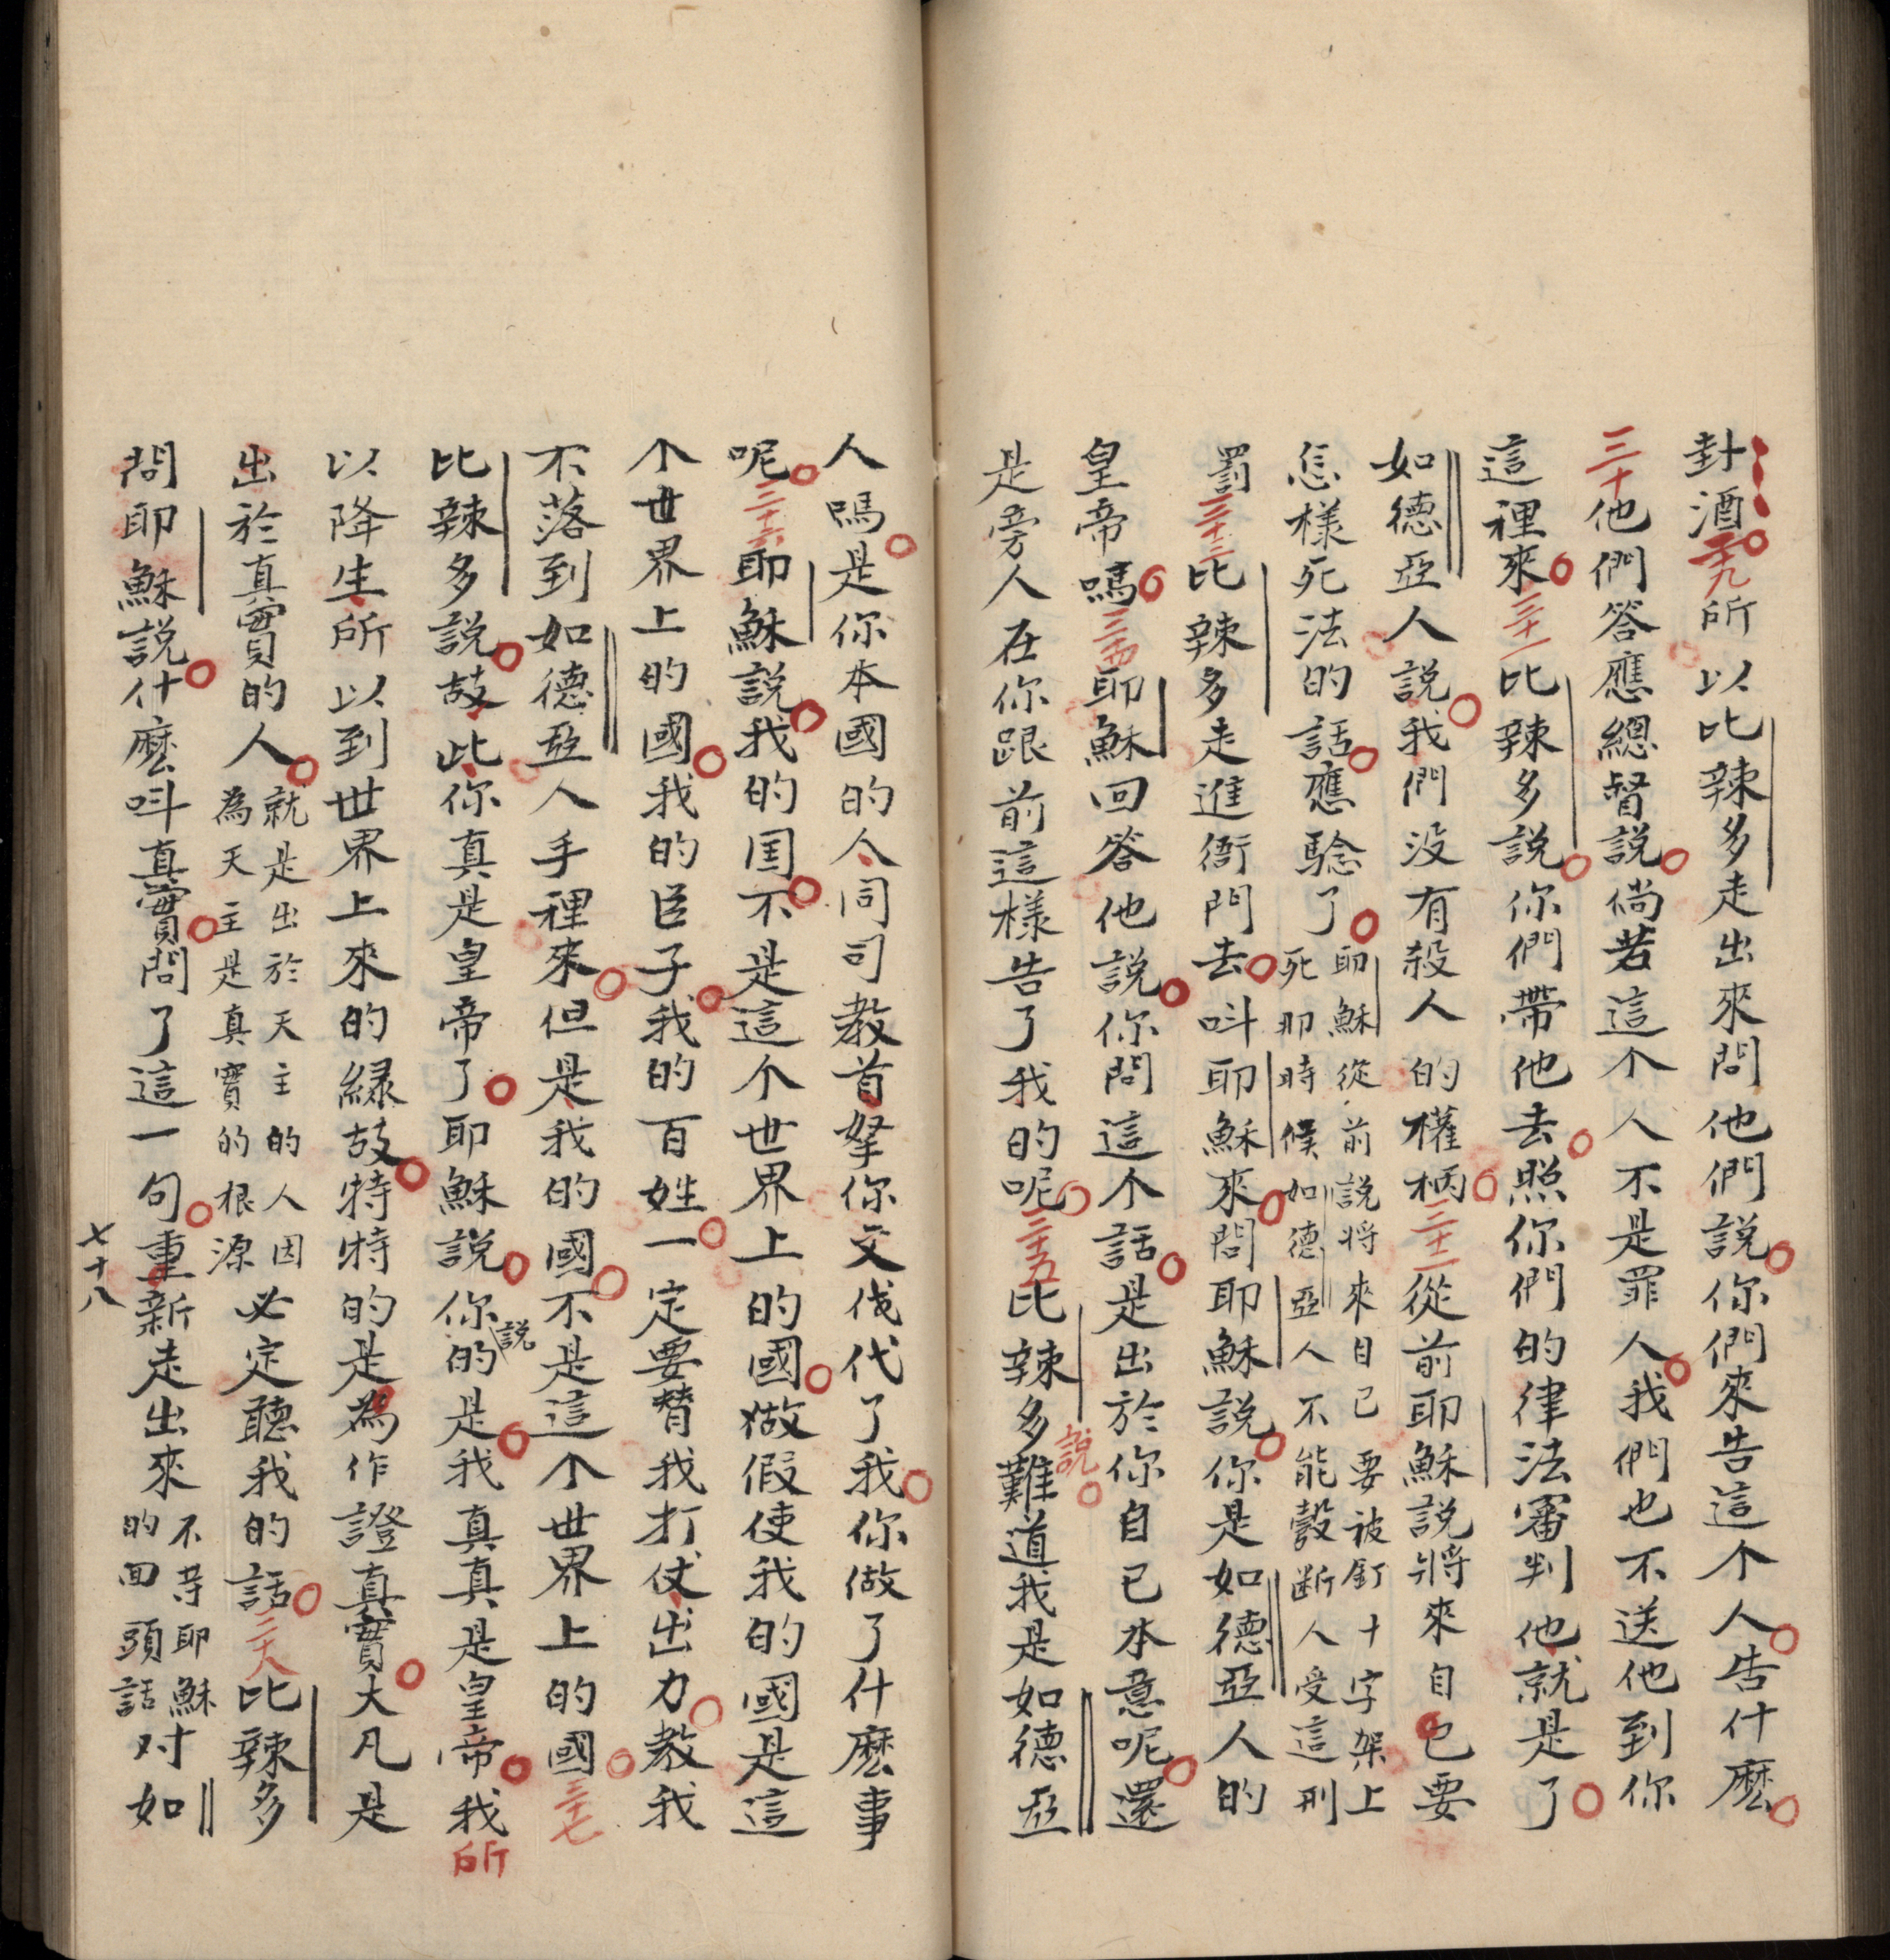 封酒二十九所以比辣多走出來問他們說你們來告這个人告什麽
三十他們答應總督說倘若這个人不是罪人我們也不送他到你
這裡來三十一比辣多說你們帶他去照你們的律法審判他就是了
如德亞人說我們没有殺人的權柄三十二從前耶穌說將來自己要
怎樣死法的話應驗了耶穌從前說將來自己要被釘十字架上死那時候如德亞人不能彀斷人受這刑
罰三十三比辣多走進衙門去呌耶穌來問耶穌說你是如德亞人的
皇帝嗎三十四耶穌回答他說你問這个話是出於你自己本意呢還
是旁人在你跟前這樣告了我的呢三十五比辣多說難道我是如德亞
人嗎是你本國的人同司教首拏你交伐代了我你做了什麽事
呢三十六耶穌說我的国不是這个世界上的國做假使我的國是這
个世界上的國我的臣子我的百姓一定要替我打仗出力教我
不落到如德亞人手裡來但是我的國不是這个世界上的國三十七
比辣多說故此你真是皇帝了耶穌說你說的是我真真是皇帝我所
以降生所以到世界上來的緣故特特的是為作證真實大凡是
出於真實的人就是出於天主的人因為天主是真實的根源必定聽我的話三十八比辣多
問耶穌說什麽呌真實問了這一句重新走出來不等耶穌的回頭話对如
七十八